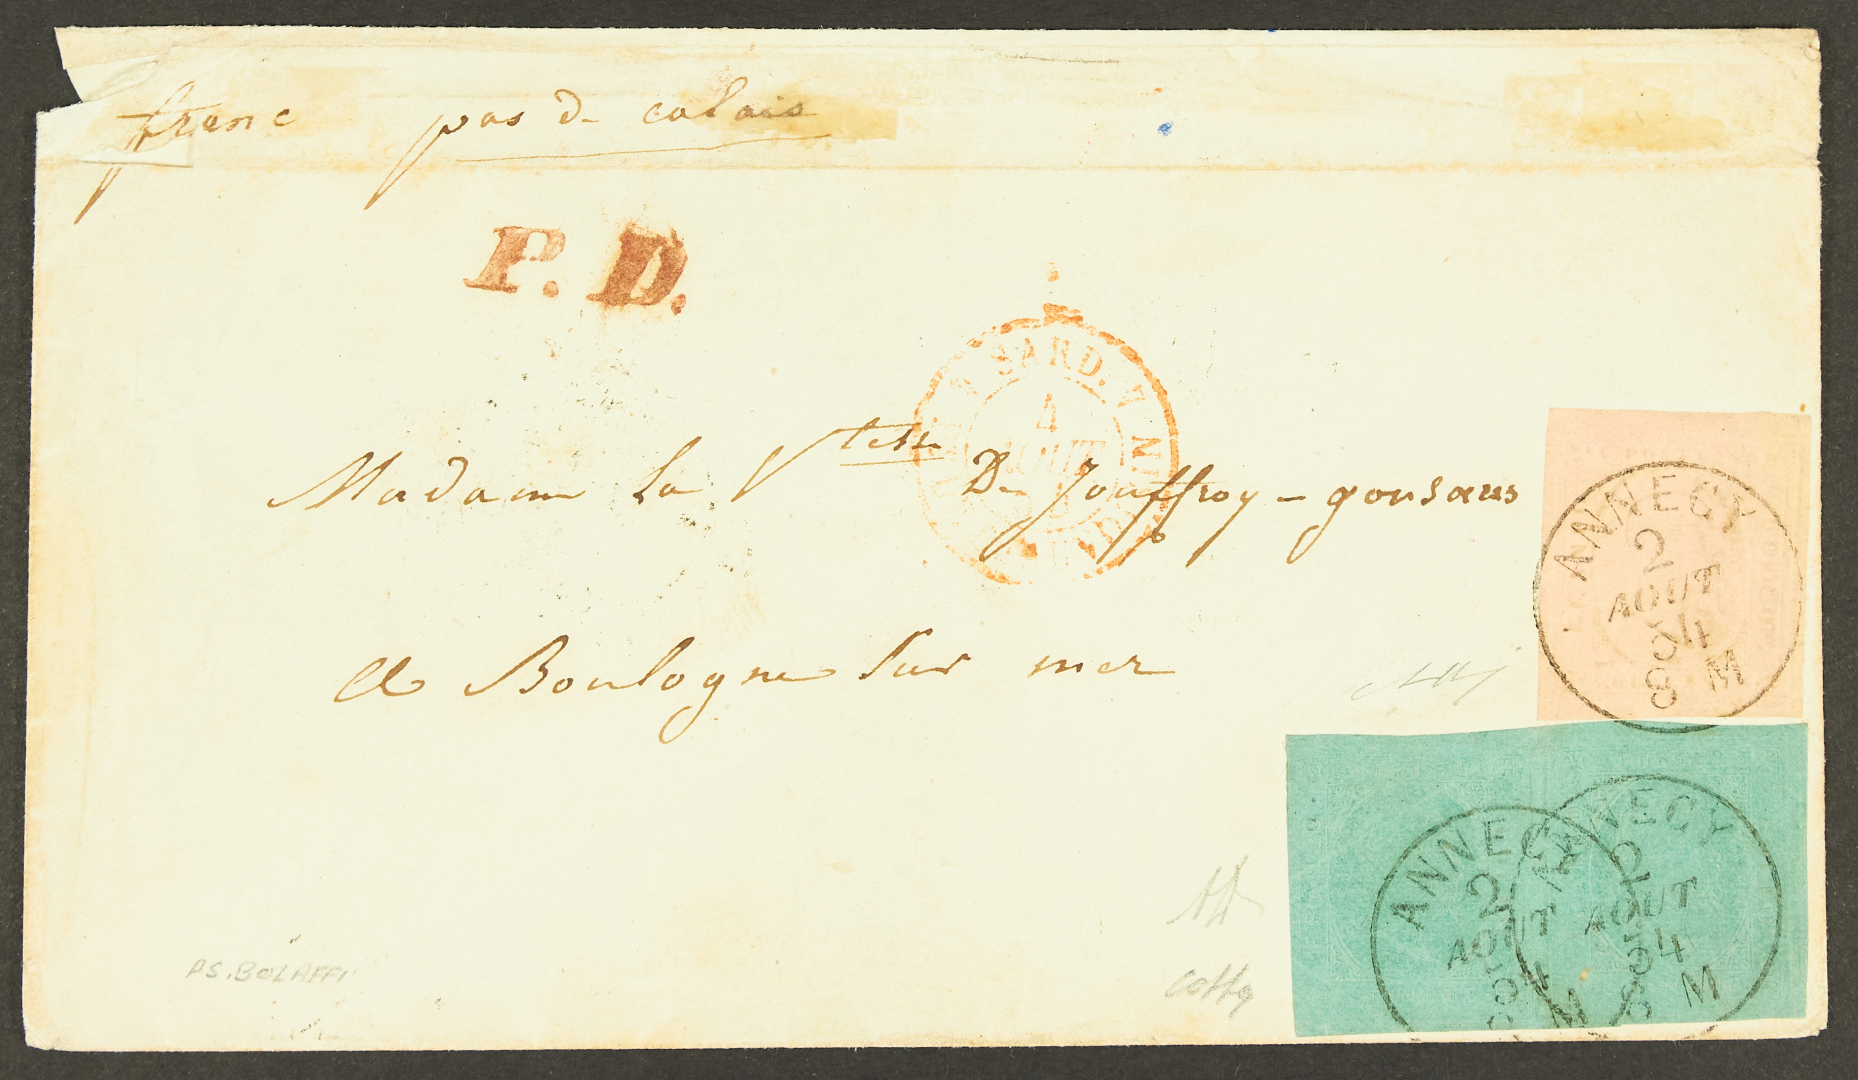 franc pas de calais
P. D.
SARD.
4
AOUT
Madame la Vtesse De Jouffroy - gonsans
a Boulogne Sur mer
ANNECY
2
AOUT
54
8 M
ANNECY
2
AOUT
54
8 M
ANNECY
2
AOUT
54
8 M
PS. BOLAFFI